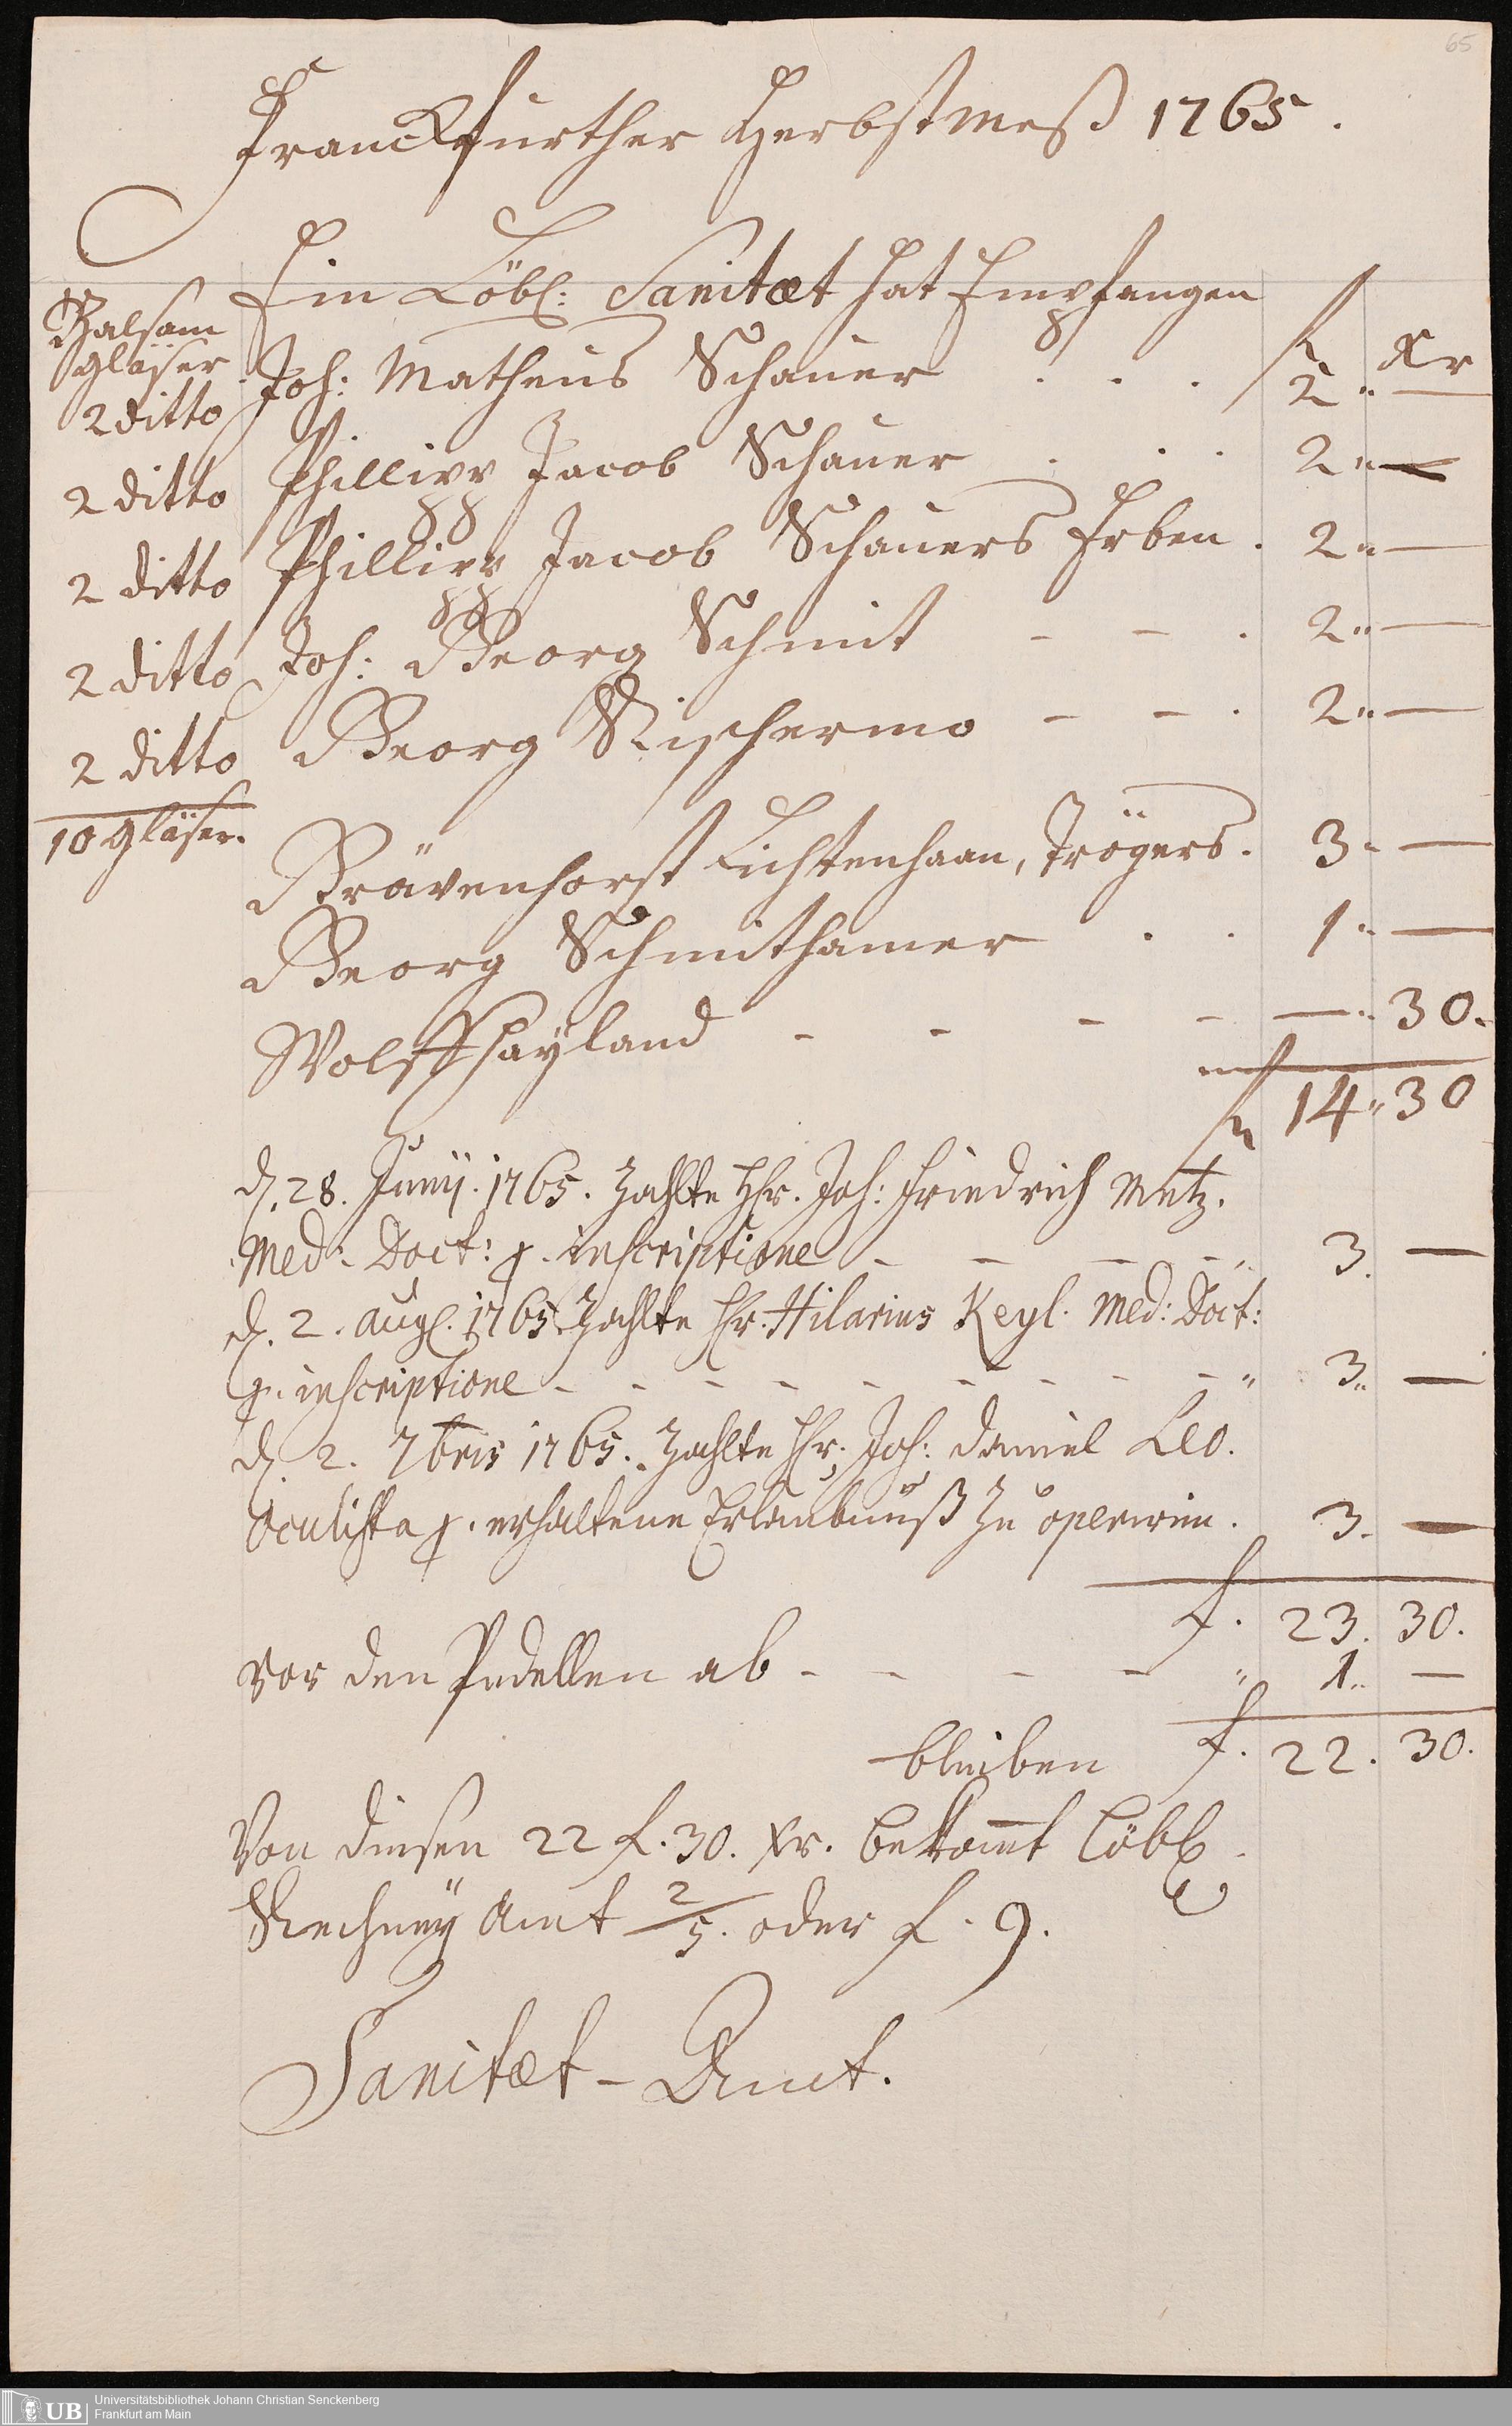 65
Franckfurther Herbstmeß 1765.
Ein Löbl: Sanitæt hat Empfangen
Balsam
gläser
f Xr
2 ditto Joh: Matheus Schauer . . . 2 " —
2 ditto Phillipp Jacob Schauer . . . 2 " —
2 ditto Phillipp Jacob Schauers Erben . 2 " —
2 ditto Joh: Georg Schmit — — . 2 " —
2 ditto Georg — — . 2 " —
10 gläser.
Grävenhorst Lichtenhaan, Trögers. 3 " —
Georg Schmithamer . . 1 " —
Wolff Hayland - - - - — " 30.
f 14 " 30
d. 28. Junij. 1765. zahlte Hr. Joh: Friedrich Metz.
Med: Doct: p. inscriptione - - - - " 3. —
d. 2. Aug. 1765. zahlte Hr. Hilarius Keyl. Med: Doct:
p. inscriptione - - - - - - - - - " 3 " —
d. 2. 7bris 1765. zahlte Hr. Joh: Daniel Leo.
Oculista p. erhaltene Erlaubnuß zu operiren. 3. —
f. 23. 30.
vor den Pedellen ab - - - - " 1 " —
bleiben f. 22. 30.
Von diesen 22 f. 30. Xr. bekomt Löbl.
Rechney Amt 2/5. oder f. 9.
Sanitæt-Amt.
UB
Universitätsbibliothek Johann Christian Senckenberg
Frankfurt am Main